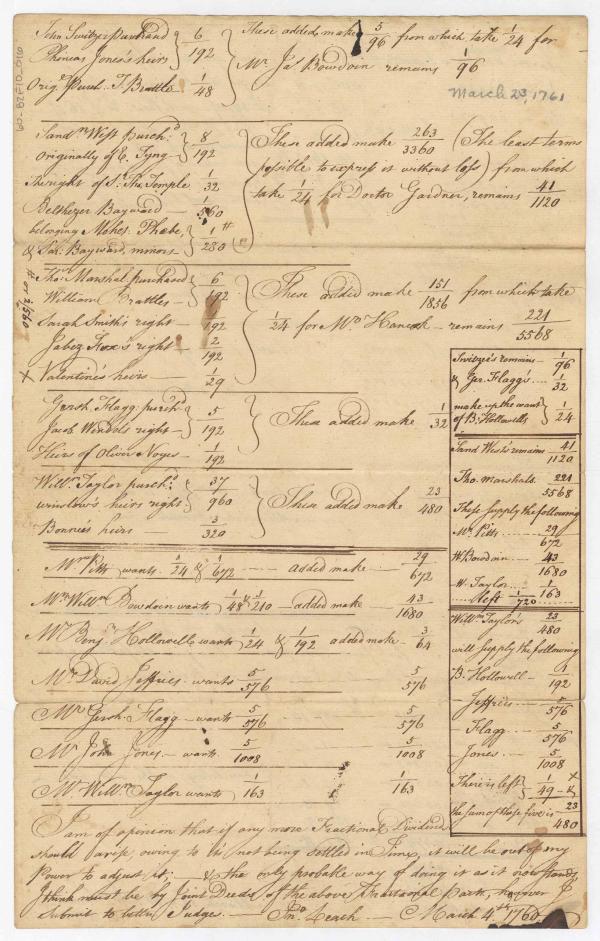 60-82F10-016
John Switzer purchased } 6/192
Phineas Jones's heirs
Orig.l Purch. T. Brattle 1/48
These added, make 5/96 from which take 1/24 for
Mr. Jas. Bowdoin remains 1/96
March 23, 1761
Sand.rs West purch.d } 8/192
originally of E. Tyng
The right of Sr. Tho. Temple 1/32
Belthezer Bayward — 1/560
belonging Mehet. Phebe, } 1/280 #
& Sar. Bayward, minors
# or 2/560
These added make 263/3360 (The least terms
possible to express it without loss) from which
take 1/24 for Doctor Gardner, remains 41/1120
Tho.s Marshal purchased } 6/192
William Brattles —
Sarah Smith's right — /192
Jabez Fox's right — 2/192
x Valentine's heirs — 1/29
These added make 151/1856 from which take
1/24 for a Mr. Hancock — remains 221/5568
Gersh. Flagg purch.d } 5/192
Jacob Wendols right
Heirs of Oliver Noyes — 1/192
These added make 1/32
Will.m Taylor purch.d } 37/960
winslow's heirs right
Bonnie's heirs — 3/320
These added make 23/480
Mr. Pitts wants 1/24 & 1/672 — added make — 29/672
Mr. Will.m Bowdoin wants 1/48 & 1/210 — added make — 43/1680
Mr. Benj.n Hollowell wants 1/24 & 1/192 added make 3/64
Mr. David Jeffries wants 5/576 5/576
Mr. Gersh. Flagg — wants 5/576 5/576
Mr. John Jones — wants 5/1008 5/1008
Mr. Will.m Taylor wants 1/163 1/163
Switze's remains — 1/96
& Ger. Flagg's 1/32
make up the want } 1/24
of B. Hollowells
Sand Wests remains 41/1120
Tho. marshals 221/5568
These supply the following
Mr. Pitts 29/672
W. Bowdoin — 43/1680
W. Taylor 1/163
left 1/720
Will.m Taylor's 23/480
will supply the following
B. Hollowell — 1/192
Jeffries 5/576
Flagg 5/576
Jones 5/1008
Their is left } 1/49 x
the sum of those five is 23/480
I am of opinion that if any more Fractional Dividends
should arise, owing to its not being settled in Time, it will be out of my
Power to adjust it; & the only probable way of doing it as it now stands
I think must be by Joint Deeds of the above Fractional parts, however I
submit to better Judges. — Jno. Leach — March 4.th 1760